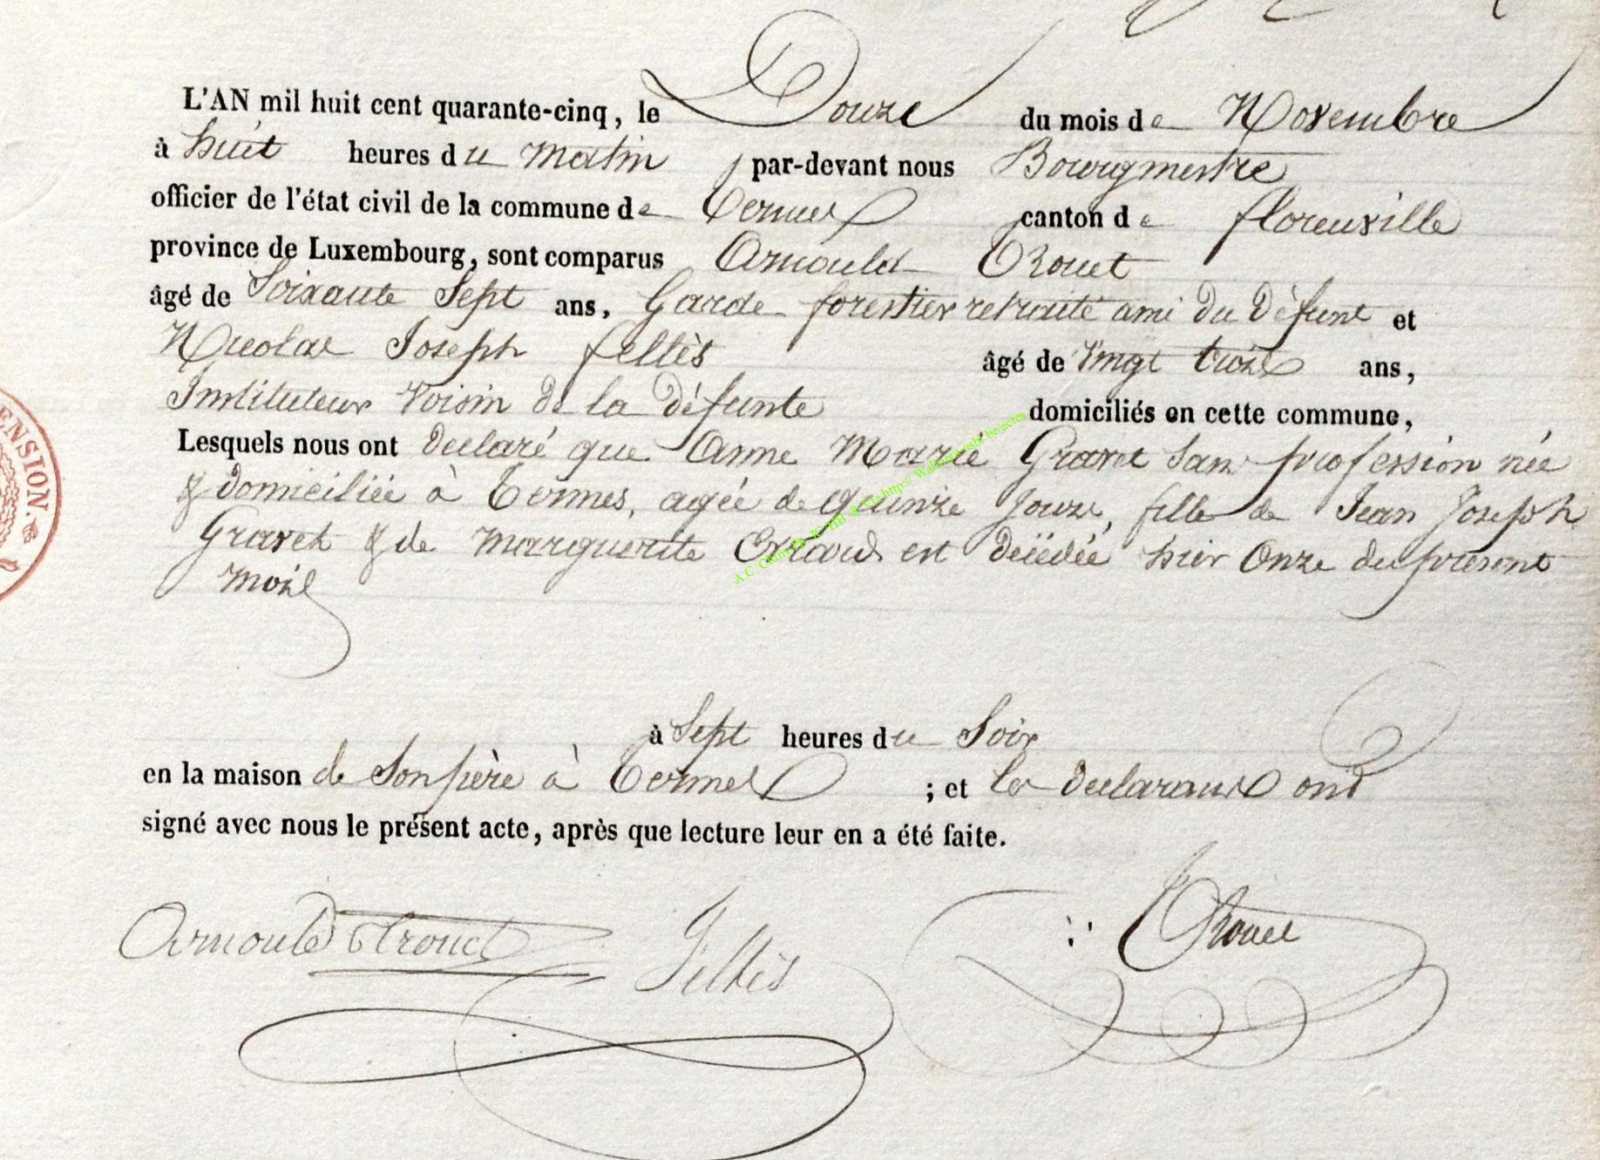 L'AN mil huit cent quarante-cinq, le Douze du mois de Novembre
à huit heures du matin par-devant nous Bourgmestre
officier de l'état civil de la commune de Termes canton de florenville
province de Luxembourg, sont comparus Arnould
âgé de Soixante Sept ans, Garde forestier retraité ami du Défunt et
Nicolas Joseph fellès âgé de Vingt trois ans,
Instituteur Voisin de la défunte domiciliés en cette commune,
Lesquels nous ont declaré que Anne Marie Gravet Sans profession née
& domiciliée à Termes, agée de quinze Jours, fille de Jean Joseph
Gravet & de Marguerite est décédée hier Onze du présent
mois
à Sept heures du Soir
en la maison de Son père à Termes ; et les declarants ont
signé avec nous le présent acte, après que lecture leur en a été faite.
Arnould Fellès
ENSION.